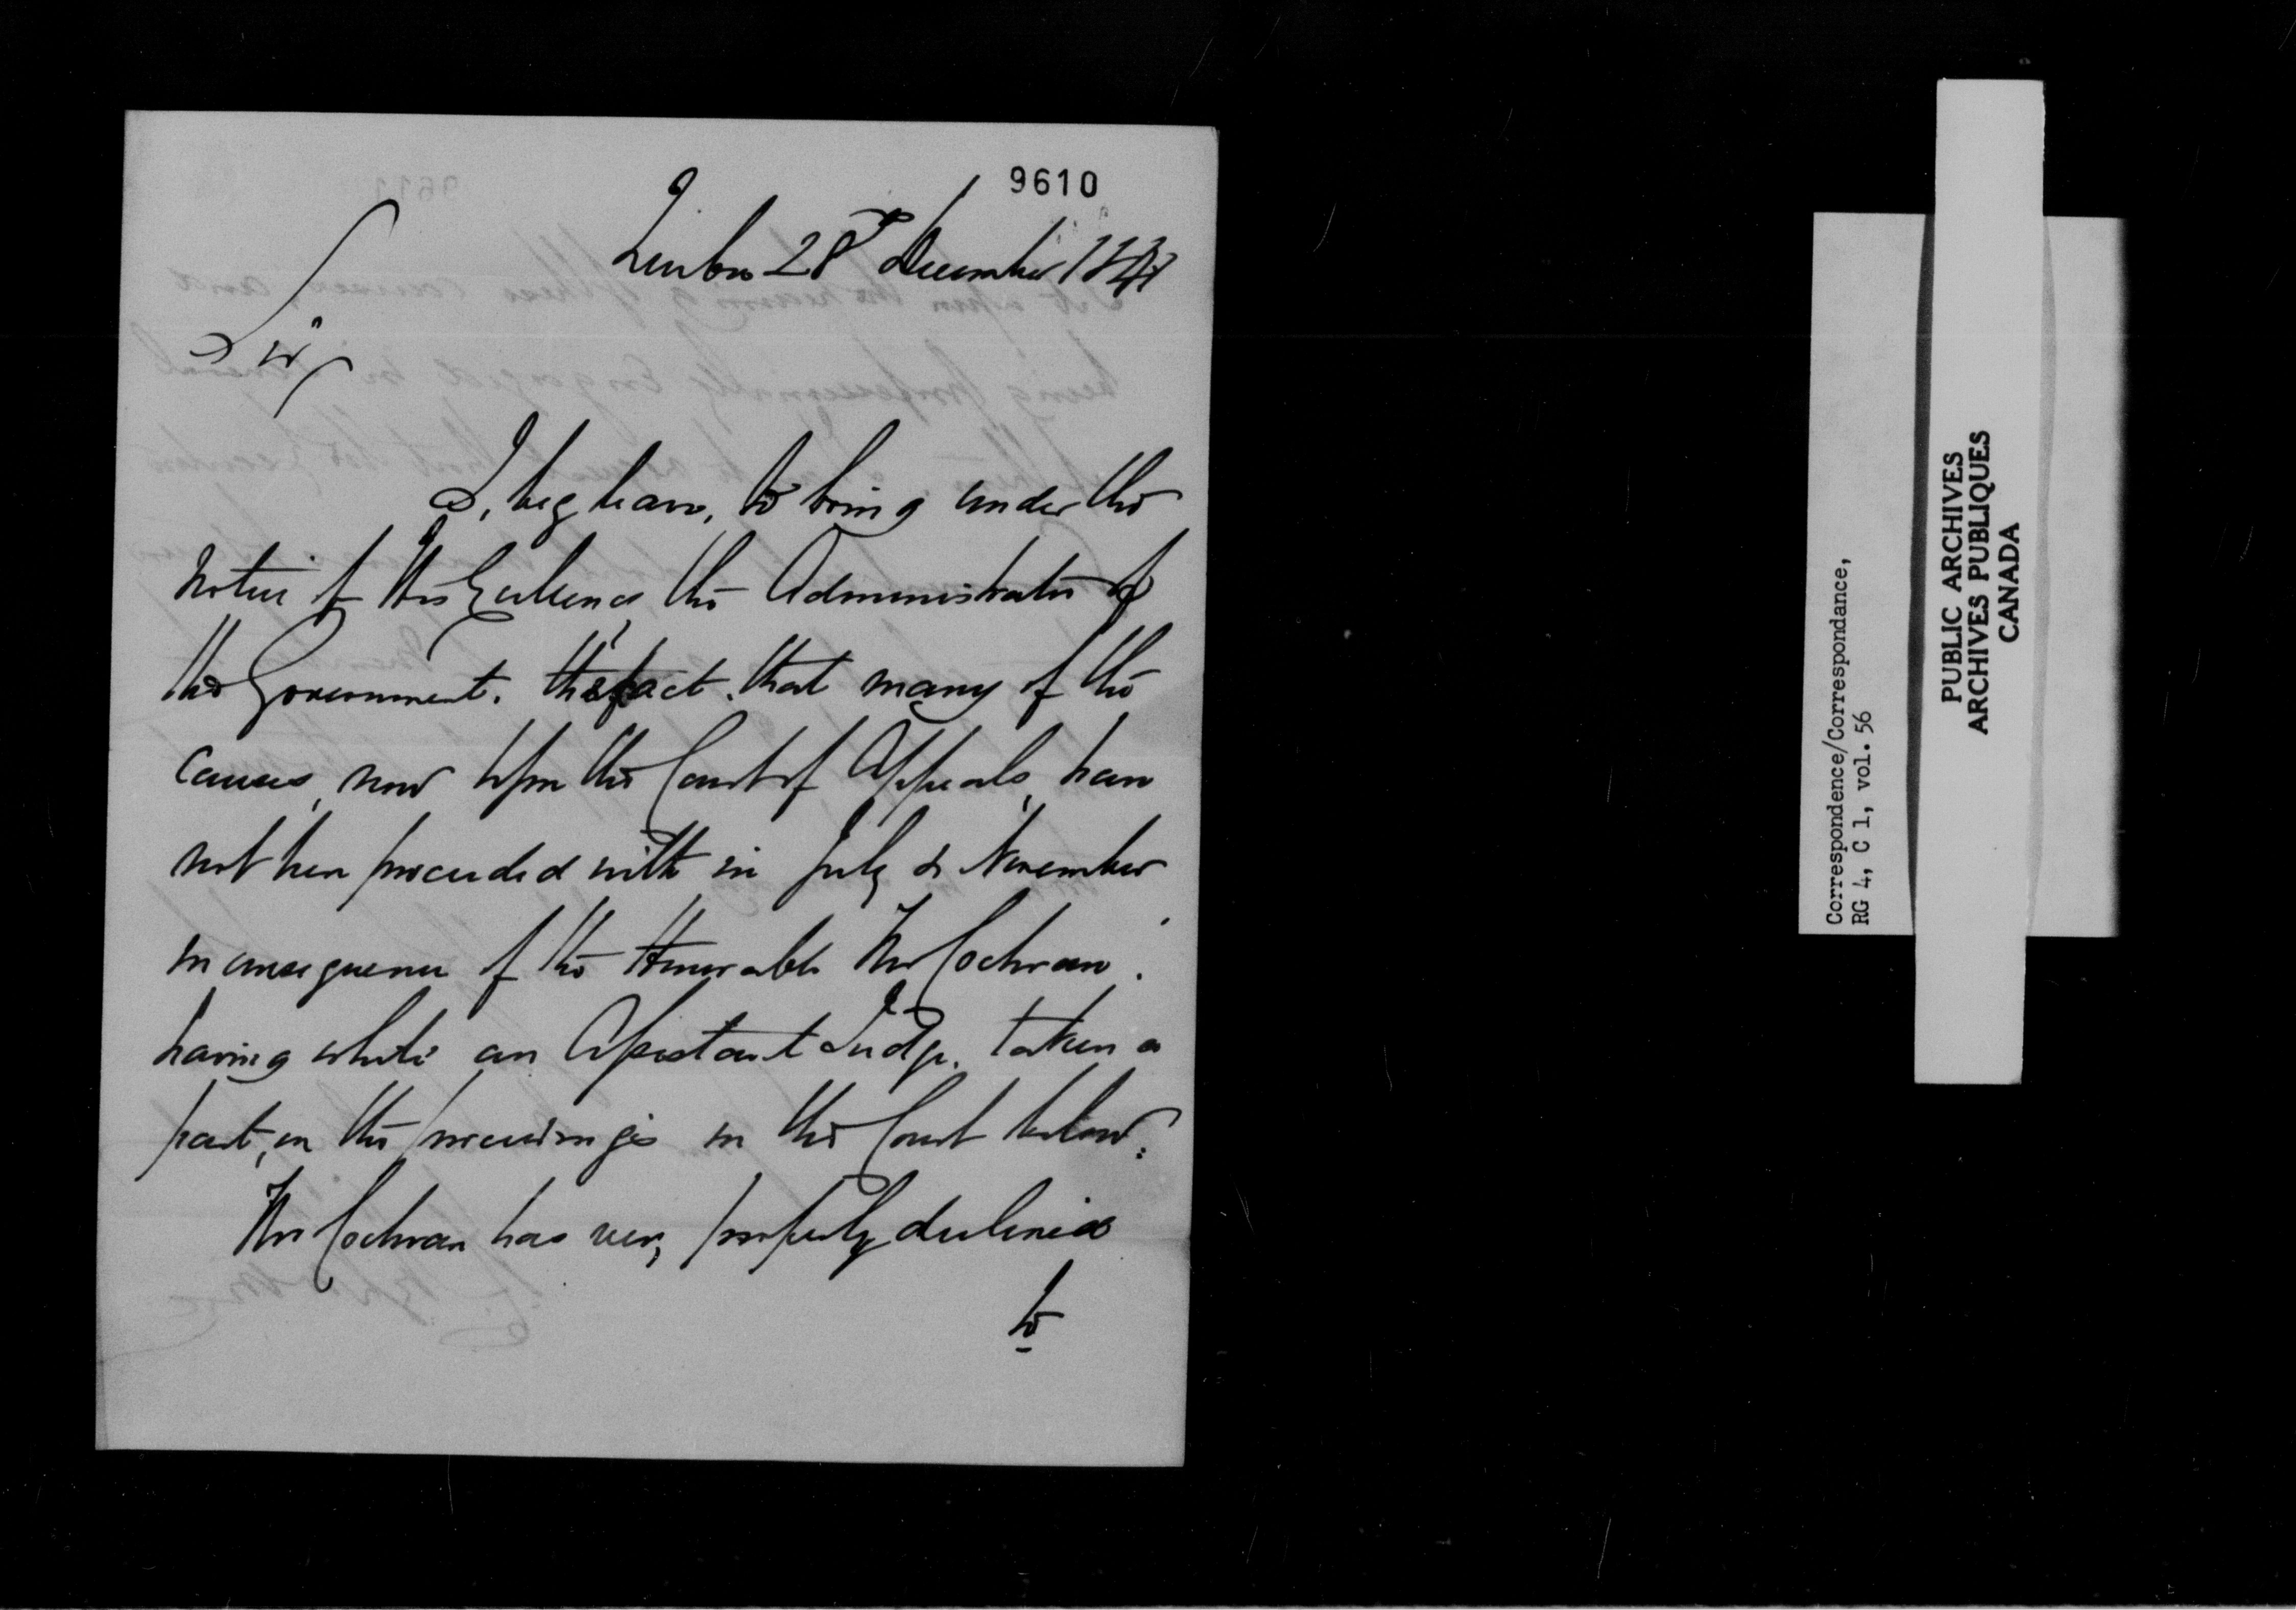 9610
Quebec 28th December 1841
Sir,
I, beg leave, to bring under the
notice of His Excellency the Administrator of
the Government. the fact. that many of the
causes, now before the Court of Appeals, have
not been proceeded with in July & November
in consequence of the Honorable Mr Cochran.
having while an Assistant Judge. taken a
part, in the proceedings in the Court below.
Mr Cochran has very properly declined
to
Correspondence/Correspondance,
RG 4, C 1, vol. 56
PUBLIC ARCHIVES
ARCHIVES PUBLIQUES
CANADA